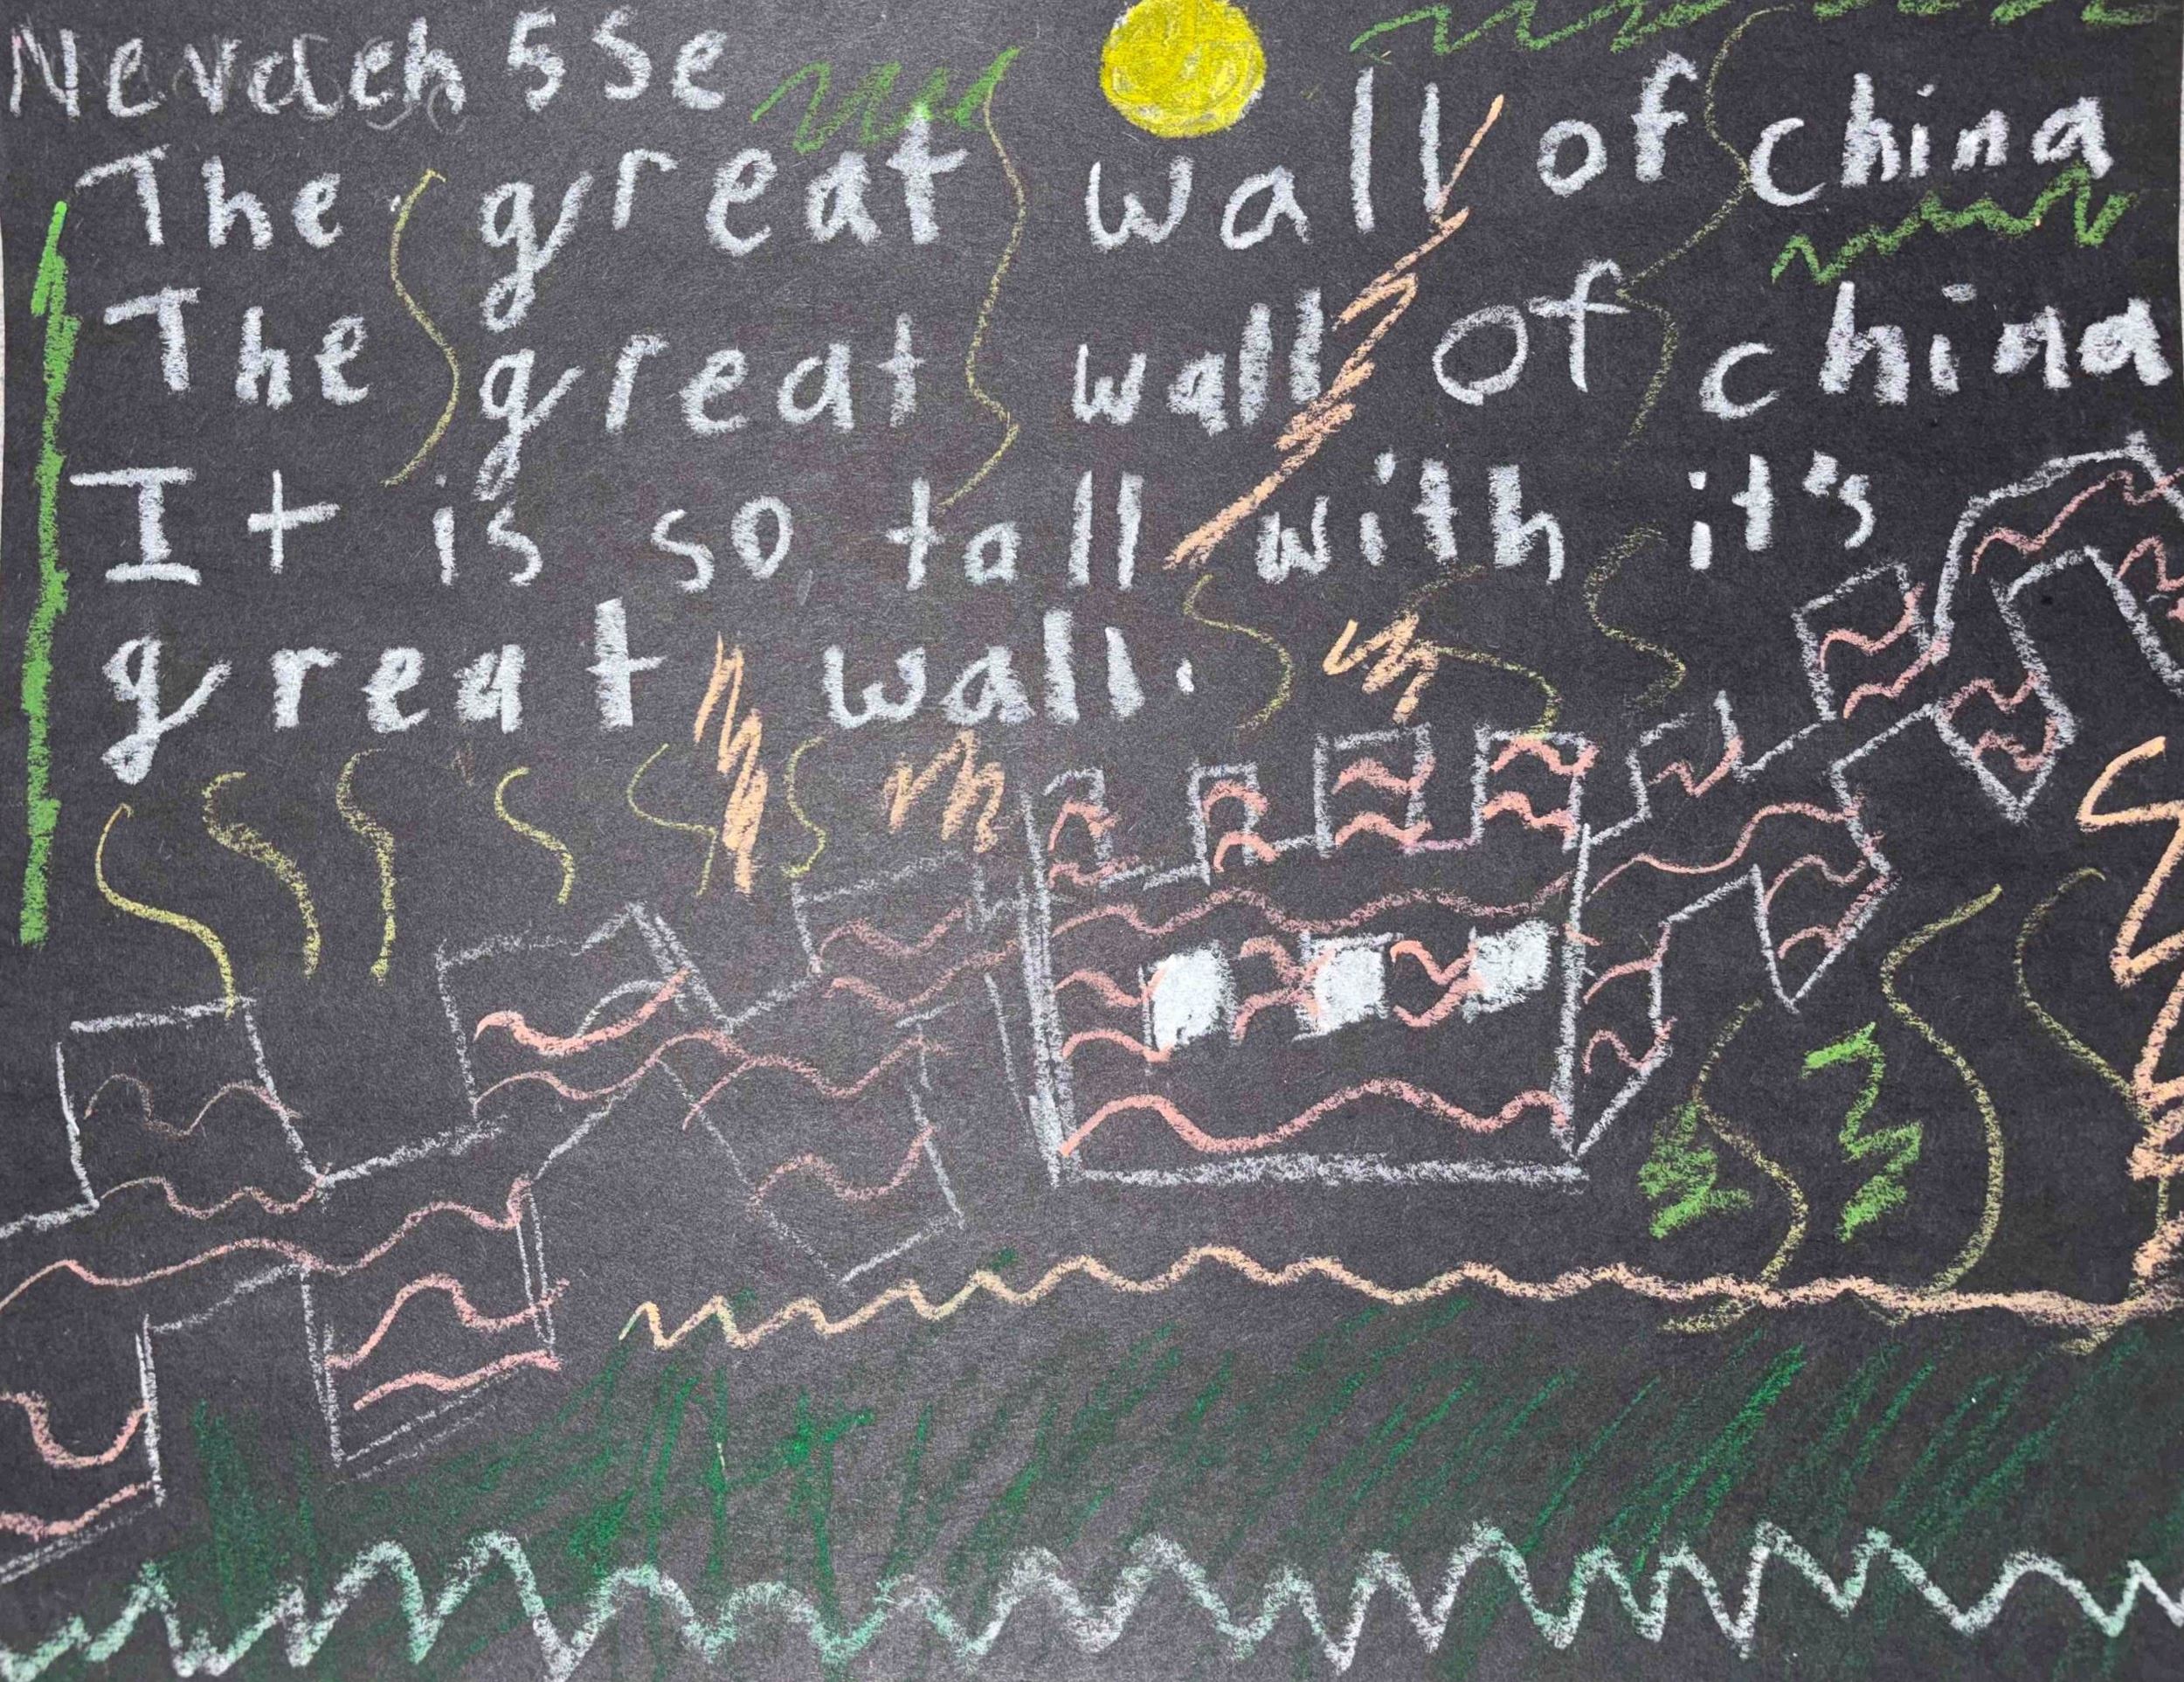 Nevaeh 5Se
The great wall of china
The great wall of china
It is so tall with it's
great wall.